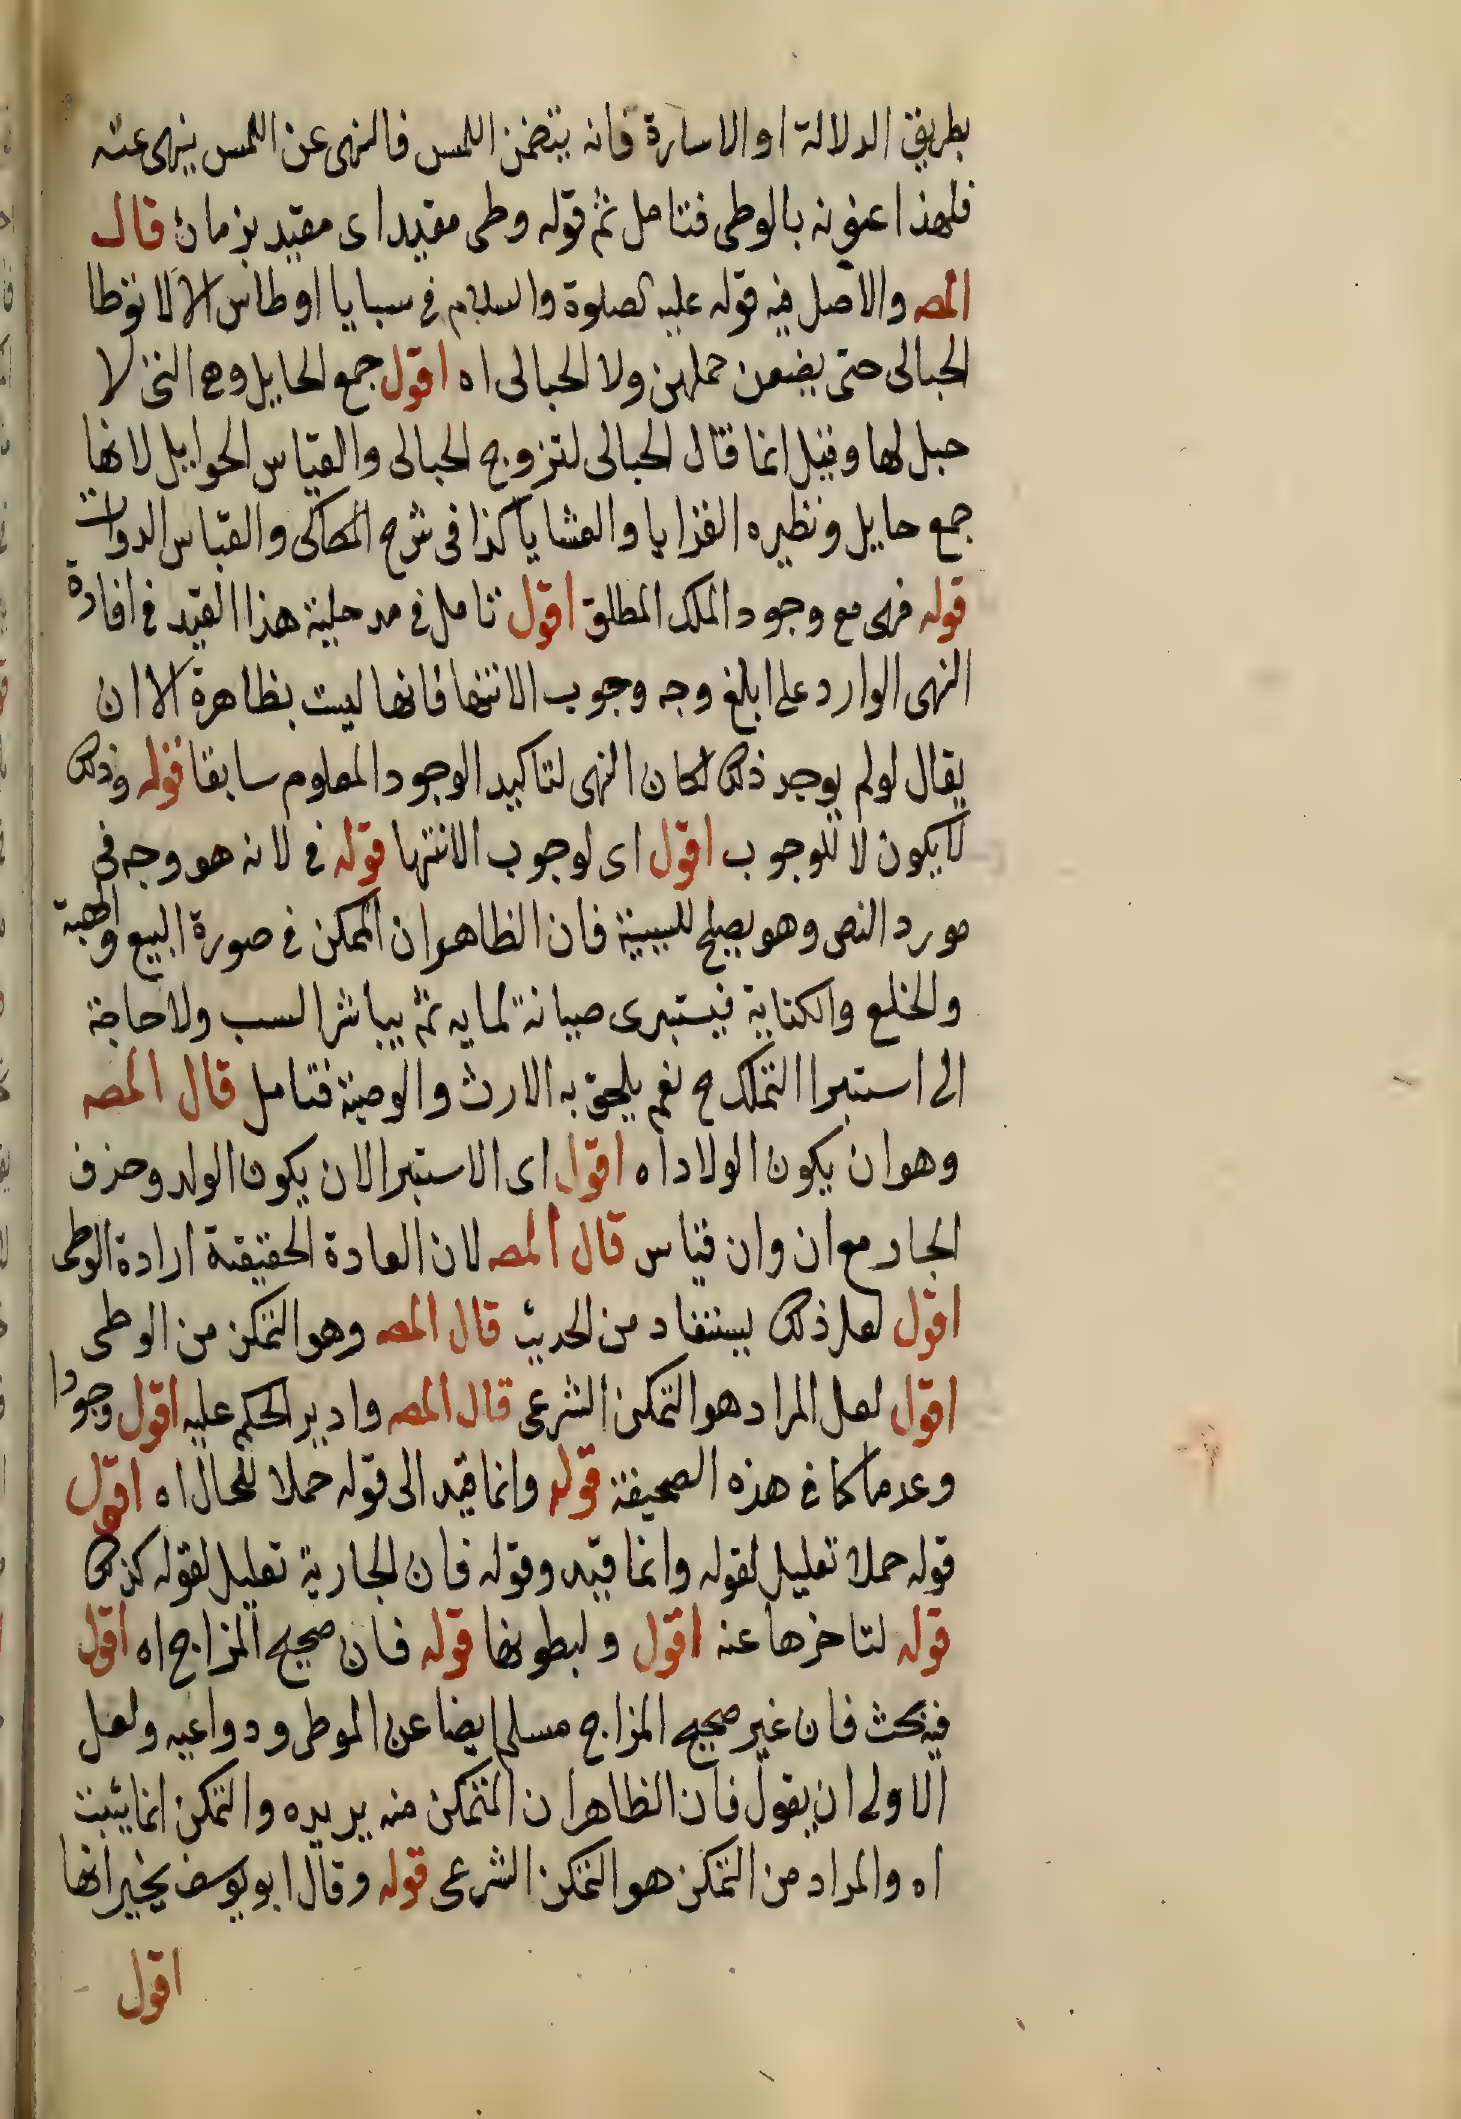 بطريق الدلالة او الاسارة فانه يتضمن اللمس فالنهى عن اللمس ينهى عنه
فلهذا عنونه بالوطى فتامل ثم قوله وطى مقيد اى مقيد بزمان قال
المصه والاصل فيه قوله عليه الصلوة والسلام فى سبايا اوطاس الا لا توطا
الحبالى حتى يضعن حملهن ولا الحبالى اه اقول جمع الحايل وهى التى لا
حبل لها وقيل انما قال الحبالى لتزوج الحبالى والقياس الحوايل لانها
جمع حايل ونظيره الغزايا والعشايا كذا فى شرح الكاكى والقياس
قوله فهى مع وجود الملك المطلق اقول تامل فى مدخلية هذا القيد فى افادة
النهى الوارد على ابلغ وجه وجوب الانتها فانها ليست بظاهرة الا ان
يقال لو لم يوجد ذلك لكان النهى لتاكيد الوجود المعلوم سابقا قوله وذلك
لا يكون لا للوجوب اقول اى لوجوب الانتها قوله فى لانه هو وجه فى
مورد النص وهو يصلح للسببية فان الظاهر ان الممكن فى صورة البيع والهبة
والخلع والكتابة فيستبرى صيانة لمايه ثم يباشر السبب ولا حاجة
الى استبرا التملك ح نعم يلحق به الارث والوصية فتامل قال المصه
وهو ان يكون الولاداه اقول اى الاستبرا لان يكون الولد وحذف
الجار مع ان وان قياس قال المصه لان العادة الحقيقية ارادة الوطى
اقول لعل ذلك يستفاد من الحديث قال المصه وهو التمكن من الوطى
اقول لعل المراد هو التمكن الشرعى قال المصه وادير الحكم عليه اقول وجودا
وعدما كما فى هذه الصحيفة قوله وانما قيد الى قوله حملا للحال اه اقول
قوله حملا تعليل لقوله وانما قيد وقوله فان الجارية تعليل لقوله كذلك
قوله لتاخرها عنه اقول ولبطونها قوله فان صحيح المزاج اه اقول
فيه بحث فان غير صحيح المزاج مسلم ايضا عن الموطى ودواعيه ولعل
الاولى ان يقول فان الظاهر ان المتمكن منه يريده والتمكن انما يثبت
اه والمراد من التمكن هو التمكن الشرعى قوله وقال ابو يوسف يخير انها
اقول